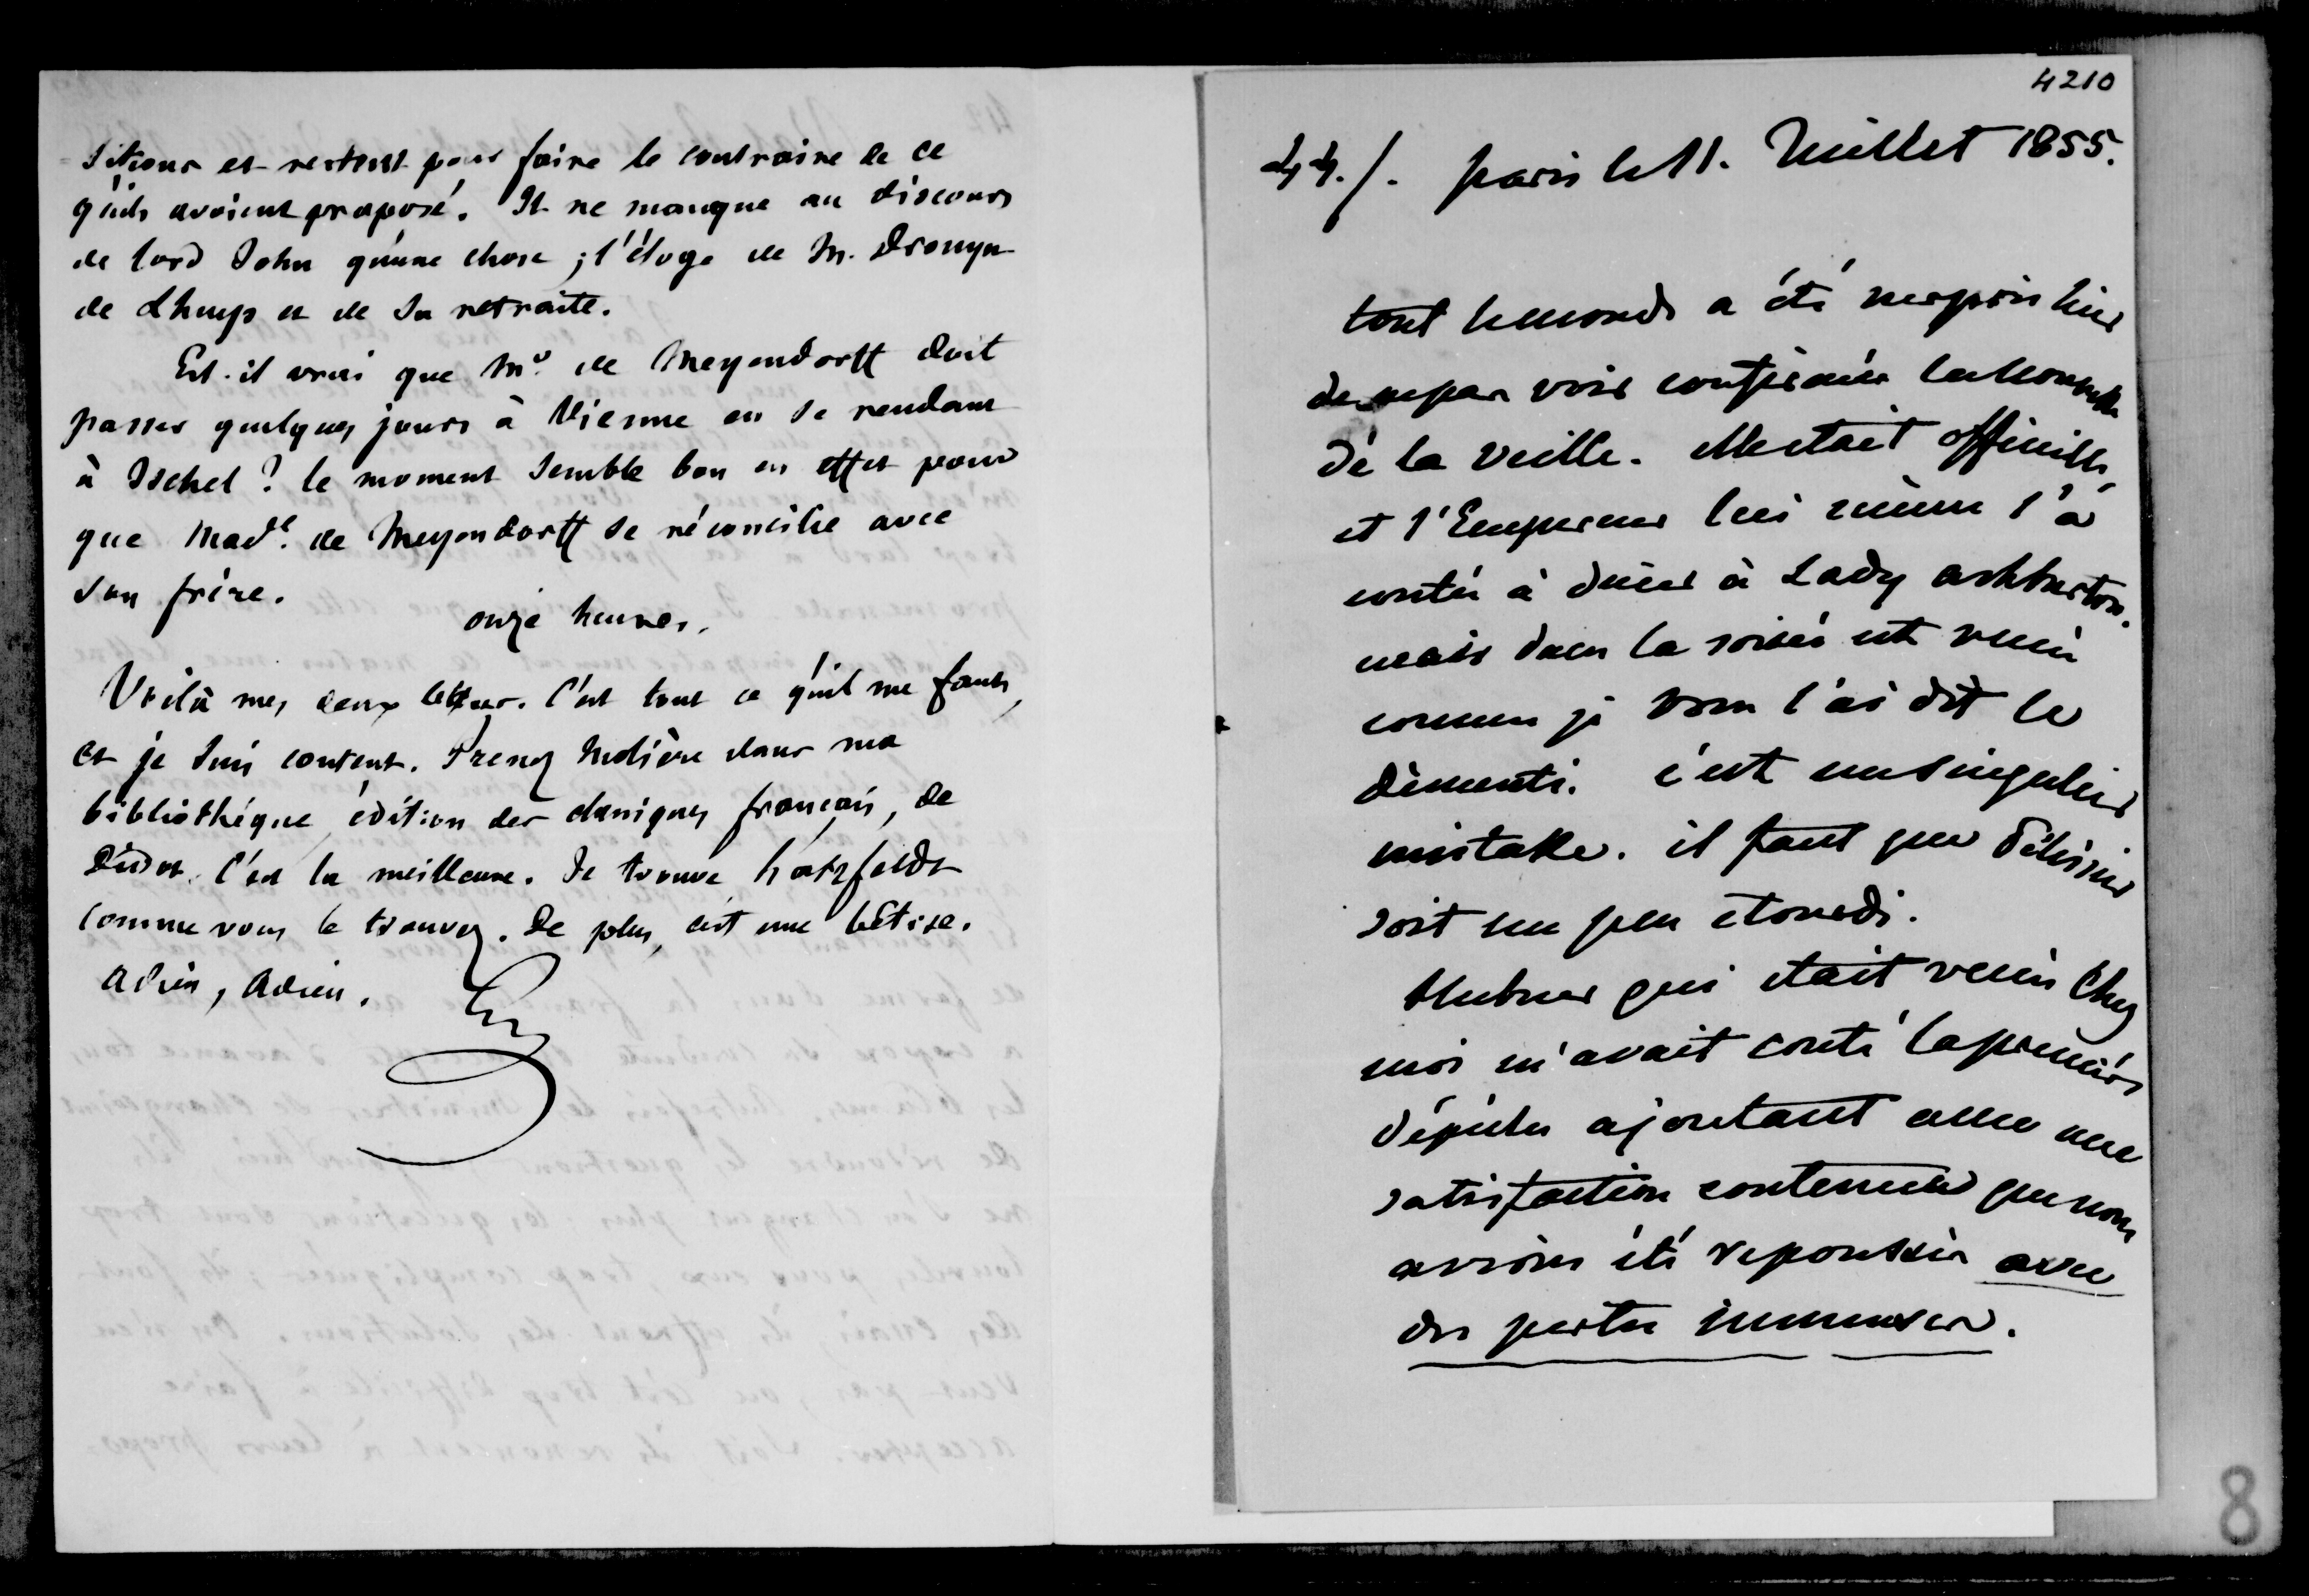 sitions et restent pour faire le contraire de ce
qu'ils avoient proposé. Il ne manque au discours
de lord John qu'une chose ; l'éloge de M. Drouyn
de Lhuys et de sa retraite.
Est-il vrai que Mr. de Meyendorff doit
passer quelques jours à Vienne en se rendant
à Ischel ? le moment semble bon en effet pour
que Made. de Meyendorff se réconcilie avec
son frère.
onze heures.
Voilà mes deux lettres. C'est tout ce qu'il me faut,
et je suis content. Prenez Molière dans ma
bibliothéque, édition des classiques français, de
Didot. C'est la meilleure. Je trouve hatzfeldt
comme vous le trouvez. De plus, c'est une bêtise.
Adieu, Adieu.
4210
44./. paris le 11. Juillet 1855.
tout le monde a été surpris hier
de ne pas voir confirmée la nouvelle
dè la veille. Elle etait officielle,
et l'Empereur lui même l'a
contée à diner à Lady ashburton.
mais dans la soirée est venu
comme je vous l'ai dit le
dèmenti. c'est un singulier
mistake. il faut que Pélissier
soit un peu etourdi.
Hubner qui etait venu chez
moi m'avait conté la première
dépêche ajoutant avec une
satisfaction contenue que nous
avions été repoussés avec
des pertes immenses.
8